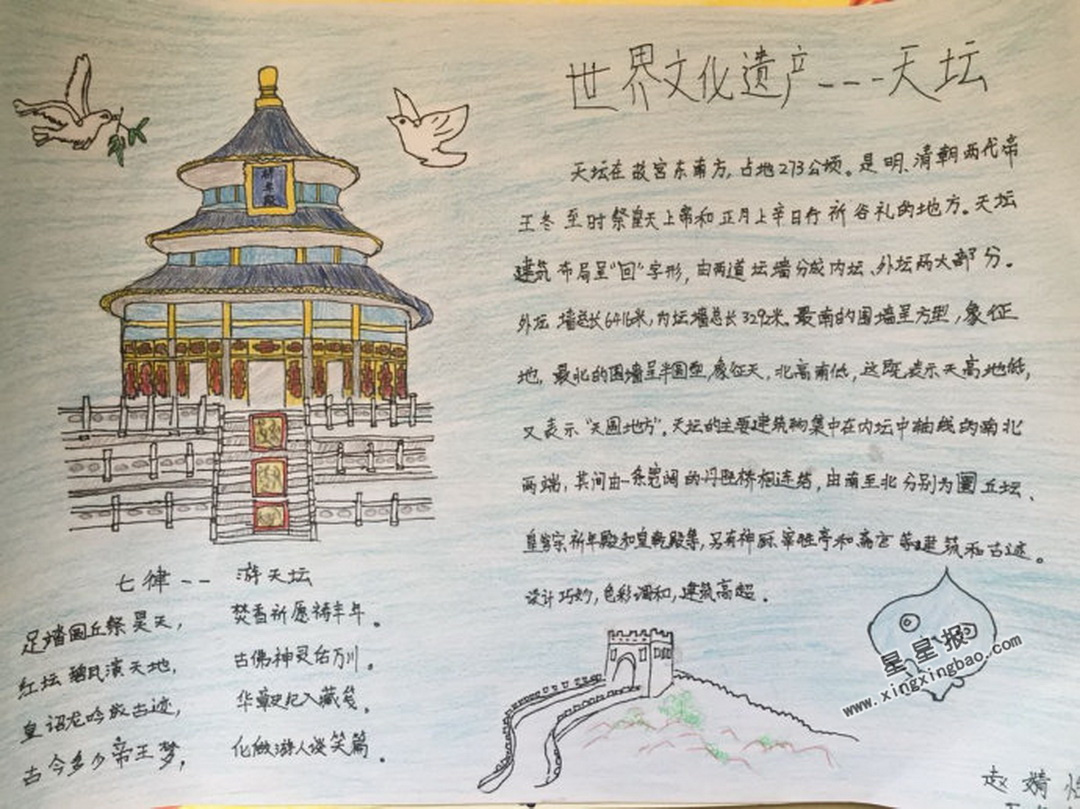 世界文化遗产---天坛
祈年殿
天坛在故宫东南方,占地273公顷。是明、清朝两代帝
王冬至时祭皇天上帝和正月上辛日行祈谷礼的地方。天坛
建筑布局呈"回"字形,由两道坛墙分成内坛、外坛两大部分。
外坛墙总长6416米,内坛墙总长3292米。最南的围墙呈方型,象征
地,最北的围墙呈半圆型,象征天,北高南低,这既表示天高地低,
又表示"天圆地方"。天坛的主要建筑物集中在内坛中轴线的南北
两端,其间由一条宽阔的丹陛桥相连结,由南至北分别为圜丘坛、
皇穹宇祈年殿和皇乾殿等,另有神厨宰牲亭和斋宫等建筑和古迹。
设计巧妙,色彩调和,建筑高超。
七律-- 游天坛
足踏圆丘祭昊天, 焚香祈愿祷丰年。
红坛 演天地, 古佛神灵佑万川。
皇诏龙吟成古迹, 华章 纪入藏笺。
古今多少帝王梦, 化做游人谈笑篇。
星星报
www.xingxingbao.com
赵婧